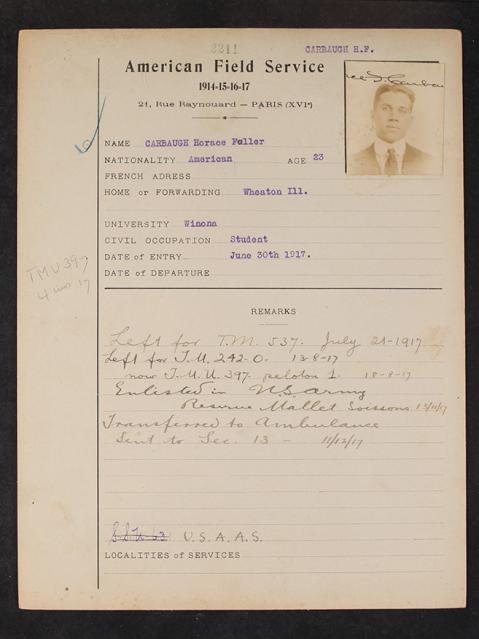 2211
CARBAUGH H.F.
American Field Service
1914-15-16-17
21, Rue Raynouard — PARIS (XVIᵉ)
NAME CARBAUGH Horace Fuller
NATIONALITY American AGE 23
FRENCH ADRESS
HOME or FORWARDING Wheaton Ill.
UNIVERSITY Winona
CIVIL OCCUPATION Student
DATE of ENTRY June 30th 1917.
DATE of DEPARTURE
TMU 397
4 17
REMARKS
Left for T.M. 537. July 21-1917
Left for T.U. 242-0. 13-8-17
now T.M.U. 397. peloton 1. 18-8-17
Enlisted in U.S. Army
Reserve Mallet Soissons 13/11/17
Transferred to Ambulance
Sent to Sec. 13 - 11/12/17
U.S.A.A.S.
LOCALITIES of SERVICES